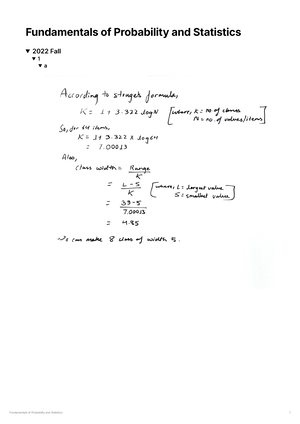 Fundamentals of Probability and Statistics
2022 Fall
1
a
According to sturges formula,
K = 1 + 3.322 logN [where, K = no. of classes
N = no. of values/items]
So, for 64 items,
K = 1 + 3.322 × log64
= 7.00013
Also,
class width = Range / K
= L - S / K [where, L = largest value
S = smallest value]
= 39 - 5 / 7.00013
= 4.85
∴ I can make 8 class of width 5.
Fundamentals of Probability and Statistics
1